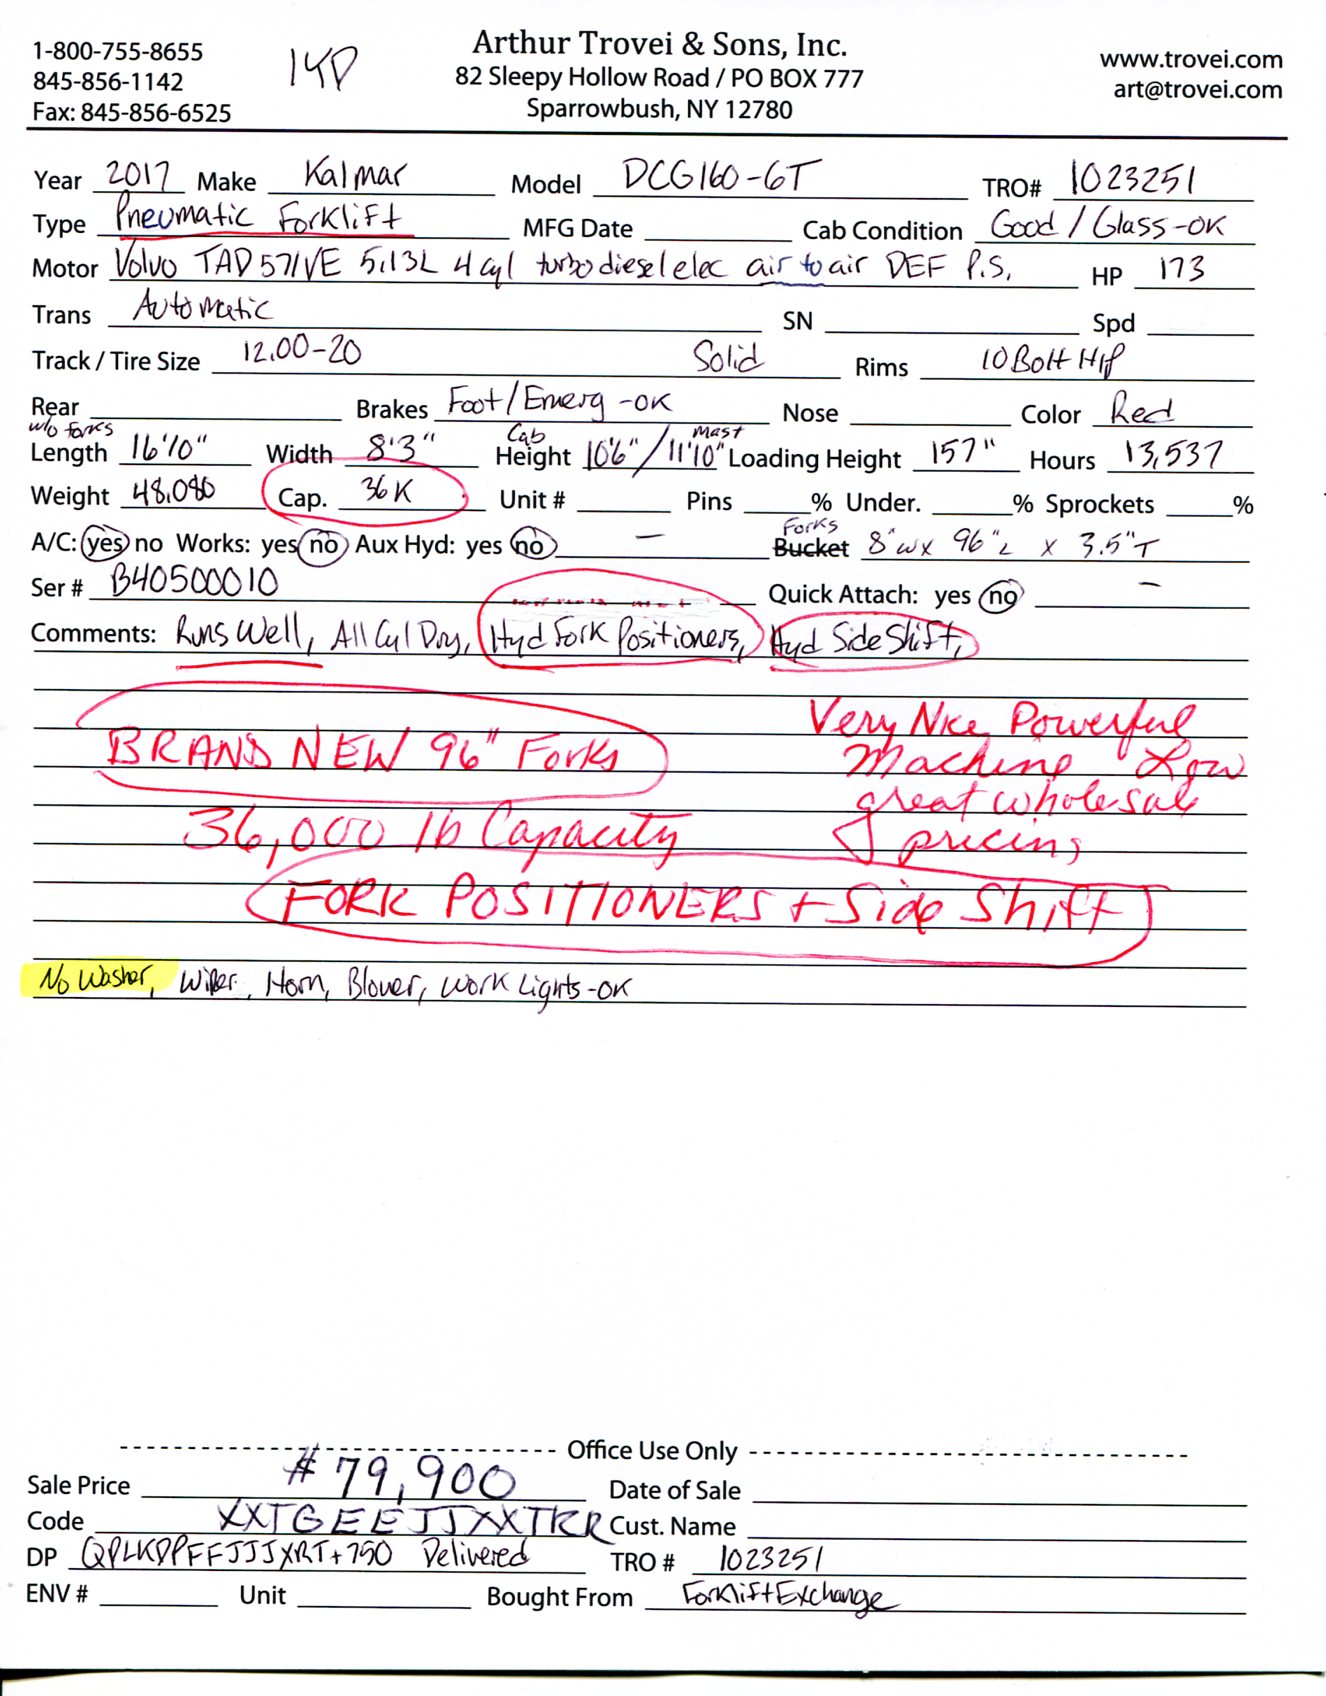 1-800-755-8655
845-856-1142
Fax: 845-856-6525
Arthur Trovei & Sons, Inc.
82 Sleepy Hollow Road / PO BOX 777
Sparrowbush, NY 12780
www.trovei.com
art@trovei.com
Year 2017 Make Kalmar Model DCG160-6T TRO# 1023251
Type Pneumatic Forklift MFG Date Cab Condition Good / Glass-OK
Motor Volvo TAD571VE 5.13L 4 cyl turbo diesel elec air to air DEF P.S. HP 173
Trans Automatic SN Spd
Track / Tire Size 12.00-20 Solid Rims 10 Bolt
Rear Brakes Foot/Emerg -OK Nose Color Red
w/o forks Cab Mast
Length 16'10" Width 8'3" Height 10'6"/11'10" Loading Height 157" Hours 13,537
Weight 48,080 Cap. 36K Unit # Pins % Under. % Sprockets %
Forks
A/C: yes no Works: yes no Aux Hyd: yes no — Bucket 8"W x 96"L x 3.5"T
Ser # B40500010 Quick Attach: yes no —
Comments: Runs Well, All Cyl Dry, Hyd Fork Positioners, Hyd Side Shift,
BRAND NEW 96" Forks
Very Nice Powerful
Machine Low
great wholesale
pricing
36,000 lb Capacity
FORK POSITIONERS + Side Shift
No Washer, Wiper, Horn, Blower, Work Lights -OK
Office Use Only
Sale Price #79,900 Date of Sale
Code XXTGEEJJXXTKR Cust. Name
DP QPLKDPFFJJJXRT+750 Delivered TRO # 1023251
ENV # Unit Bought From Forklift Exchange